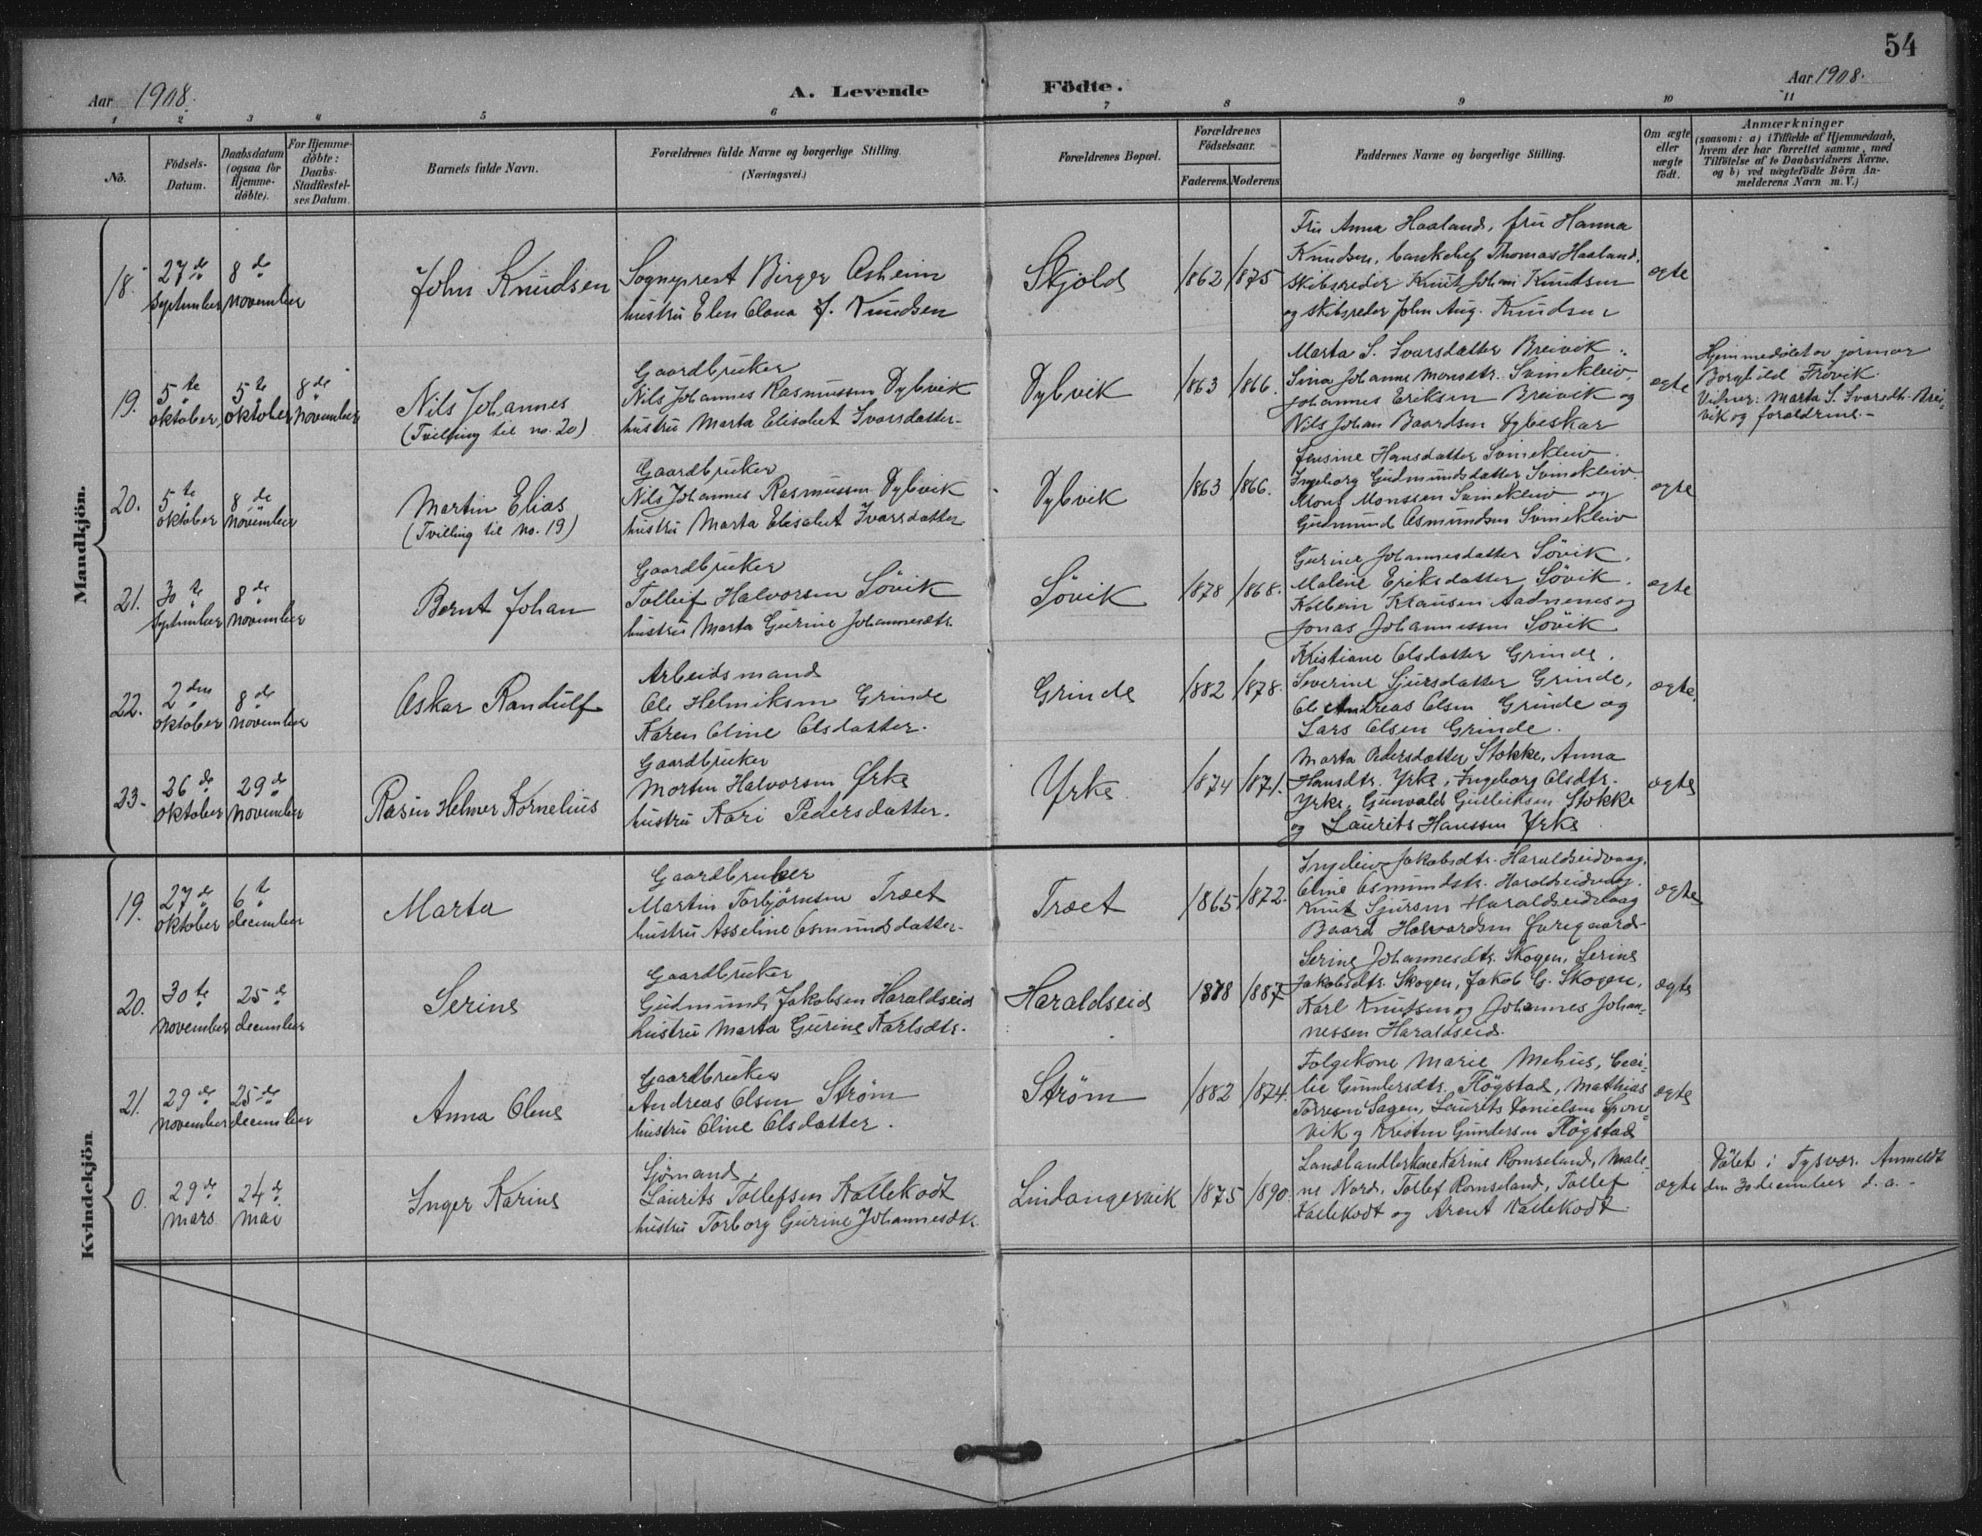 54
Aar 1908.
A. Levende Födte.
Aar 1908.
1 2 3 4 5 6 7 8 9 10 11
No.
Födsels-Datum.
Daabsdatum (ogsaa for Hjemme-döbte).
For Hjemme-döbte: Daabs-Stadfæstel-ses Datum.
Barnets fulde Navn.
Forældrenes fulde Navne og borgerlige Stilling.
(Næringsvei.)
Forældrenes Bopæl.
Forældrenes Födselsaar.
Faderens. Moderens.
Faddernes Navne og borgerlige Stilling.
Om ægte eller uægte födt.
Anmærkninger
(saasom: a) i Tilfælde af Hjemmedaab, hvem der har forrettet samme, med Tilföielse af to Daabsvidners Navne, og b) ved uægtefödte Börn An-melderens Navn m. V.)
Mandkjön.
18.
27de september
8de november
John Knudsen
Sogneprest Birger Asheim
hustru Elen Olava f. Knudsen
Skjold
1862 1875
Fru Anna Haaland, fru Hanna
Knudsen, bankchef Thomas Haaland,
Skibsreder Knut Johan Knudsen
og skibsreder John Aug. Knudsen
ægte
19.
5te oktober
5te oktober
8de november
Nils Johannes
(Tvilling til no. 20)
Gaardbruker
Nils Johannes Rasmussen Dybvik
hustru Marta Elisabet Ivarsdatter
Dybvik
1863 1866.
Marta S. Ivarsdatter Breivik.
Sina Johanne Monsdtr. Svinekleiv,
Johannes Eriksen Breivik og
Nils Johan Baardsen Dybeskar
ægte
Hjemmedøbt av jormor
Borghild Frøvik.
Vidner: Marta S. Ivarsdtr. Brei-
vik og forældrene -
20.
5te oktober
8de november
Martin Elias
(Tvilling til no. 19)
Gaardbruker
Nils Johannes Rasmussen Dybvik
hustru Marta Elisabet Ivarsdatter
Dybvik
1863 1866.
Jensine Hansdatter Svinekleiv.
Ingeborg Gudmundsdatter Svinekleiv.
Mons Monssen Svinekleiv og
Gudmund Asmundsen Svinekleiv
ægte
21.
30te september
8de november
Bernt Johan
Gaardbruker
Tollef Halvorsen Søvik
hustru Marta Gurine Johannesdtr.
Søvik
1878 1868.
Gurine Johannesdatter Søvik.
Malene Eriksdatter Søvik.
Kolbein Klausen Aadnenes og
Jonas Johannessen Søvik
ægte
22.
2den oktober
8de november
Oskar Randulf
Arbeidsmand
Ole Helmiksen Grinde
Karen Oline Olsdatter.
Grinde
1882 1878.
Kristiane Olsdatter Grinde.
Severine Sjursdatter Grinde,
Ole Andreas Olsen Grinde og
Lars Olsen Grinde.
ægte.
23.
26de oktober
29de november
Rasin Helmer Kornelius
Gaardbruker
Morten Halvorsen Yrke
hustru Kari Pedersdatter.
Yrke
1874 1871.
Marta Pedersdatter Stokke, Anna
Hansdtr. Yrke, Ingeborg Olsdtr.
Yrke, Gunvald Gulleiksen Stokke
og Laurits Hanssen Yrke
ægte
Kvindekjön
19.
27de oktober
6te december
Marta
Gaardbruker
Martin Torbjørnsen Træet
hustru Asseline Osmundsdatter.
Træet
1865 1872.
Ingeleiv Jakobsdtr. Haraldseidvaag.
Oline Osmundsdtr. Haraldseidvaag.
Knut Sjursen Haraldseidvaag
Baard Halvardsen Øvregaard
ægte
20.
30te november
25de december
Serine
Gaardbruker
Gudmund Jakobsen Haraldseid
hustru Marta Gurine Karlsdtr.
Haraldseid
1878 1887
Serine Johannesdtr. Skogen, Serine
Jakobsdtr. Skogen, Jakob G. Skogen,
Karl Knutsen og Johannes Johan-
nessen Haraldseid.
ægte
21.
29de november
25de december
Anna Oline
Gaardbruker
Andreas Olsen Strøm
hustru Oline Olsdatter.
Strøm
1882 1874.
Folgekone Marie Mehus, Ceci-
lie Gundersdtr. Fløgstad, Mathias
Torresen Sagen, Laurits Danielsen
vik og Kristen Gundersen Fløgstad
ægte
0.
29de mars
24de mai
Inger Karine
Sjømand
Laurits Tollefsen Kallekodt
hustru Torborg Gurine Johannesdtr.
Lindangervik
1875 1890.
Landhandlerkone Karine Romseland, Male-
ne Nord, Tollef Romseland, Tollef
Kallekodt og Arent Kallekodt
ægte
Døbt i Tysvær. Anmeldt
den 30 december d. a. -